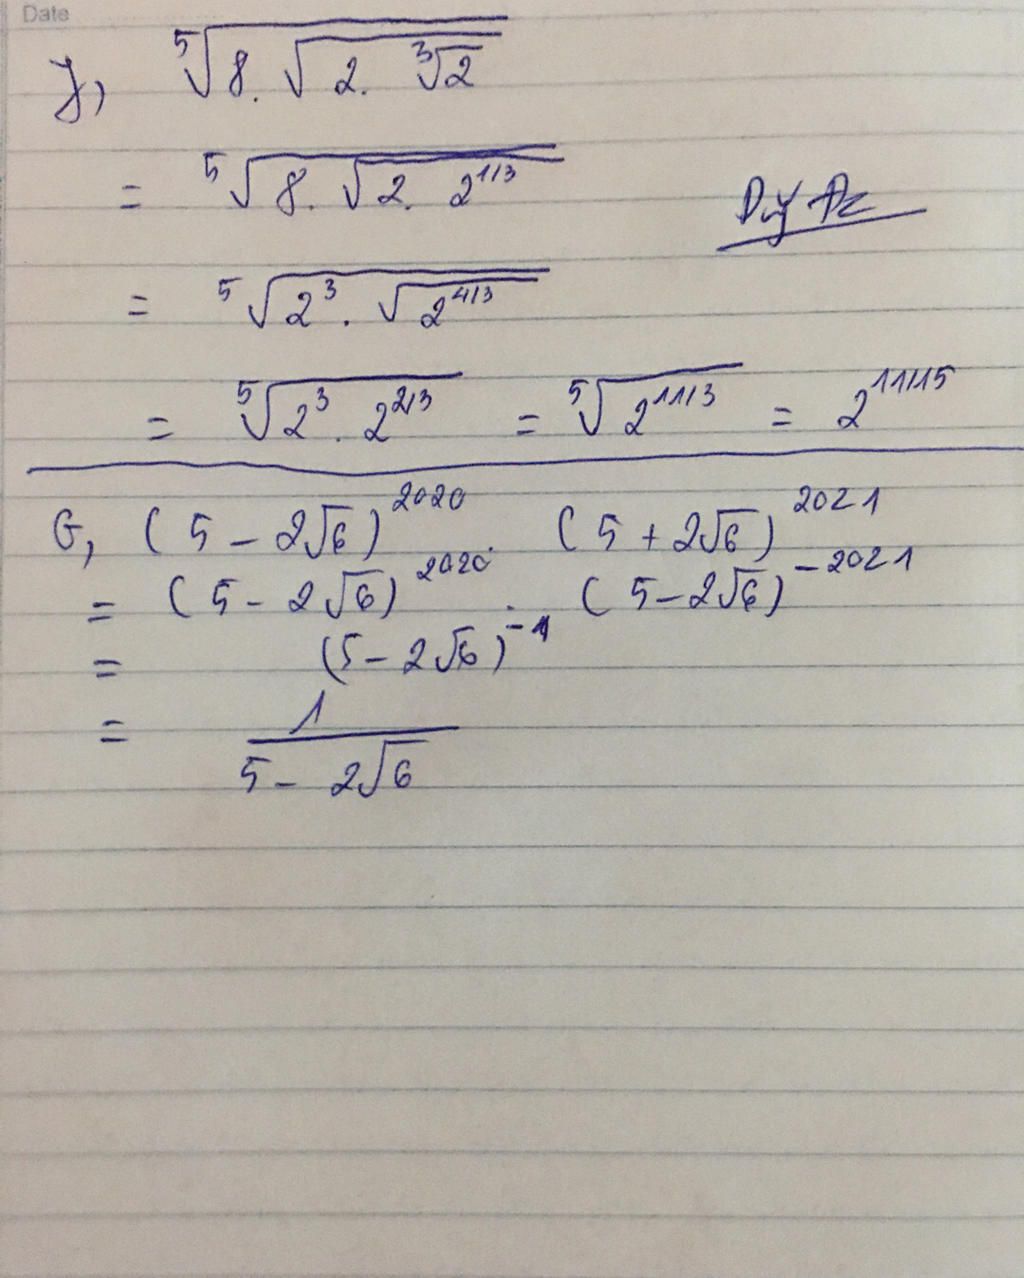 Date
y, ⁵√(8.√(2.³√2))
= ⁵√(8.√(2.2^1/3))
Duy Dz
= ⁵√(2³.√(2^4/3))
= ⁵√(2³.2^2/3) = ⁵√(2^11/3) = 2^11/15
G, (5-2√6)^2020. (5+2√6)^2021
= (5-2√6)^2020. (5-2√6)^-2021
= (5-2√6)^-1
= 1/(5-2√6)